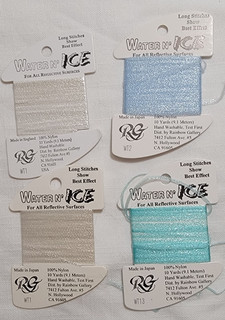 Long Stitches
Show
Best Effect
WATER N' ICE
FOR ALL REFLECTIVE SURFACES
Made in Japan
RG
WT1
100% Nylon
10 Yards (9.1 Meters)
Hand Washable, Test First
Dist by Rainbow Gallery
7412 Fulton Ave. #5
N. Hollywood
CA 91605
USA
Long Stitches
Show
Best Effect
WATER N' ICE
For All Reflective Surfaces
RG
100% Nylon
10 Yards (9.1 Meters)
Hand Washable, Test First
Dist by Rainbow Gallery
7412 Fulton Ave. #5
N. Hollywood
CA 91605
Long Stitches
Show
Best Effect
WATER N' ICE
For All Reflective Surfaces
Made in Japan
RG
WT1
100% Nylon
10 Yards (9.1 Meters)
Hand Washable, Test First
Dist by Rainbow Gallery
7412 Fulton Ave. #5
N. Hollywood
CA 91605
Long Stitches
Show
Best Effect
WATER N' ICE
For All Reflective Surfaces
Made in Japan
RG
100% Nylon
10 Yards (9.1 Meters)
Hand Washable, Test First
Dist by Rainbow Gallery
7412 Fulton Ave. #5
N. Hollywood
CA 91605